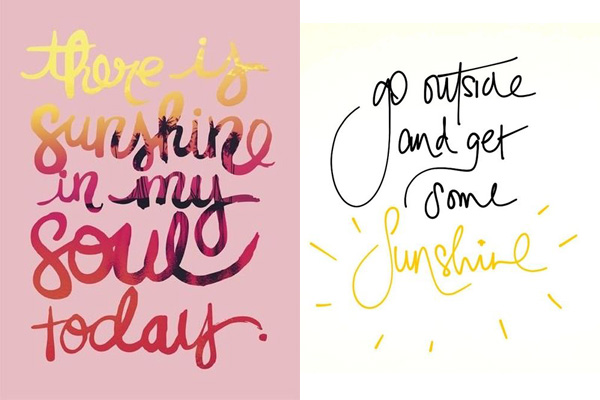 there is
sunshine
in my
soul
today.
go outside
and get
some
sunshine